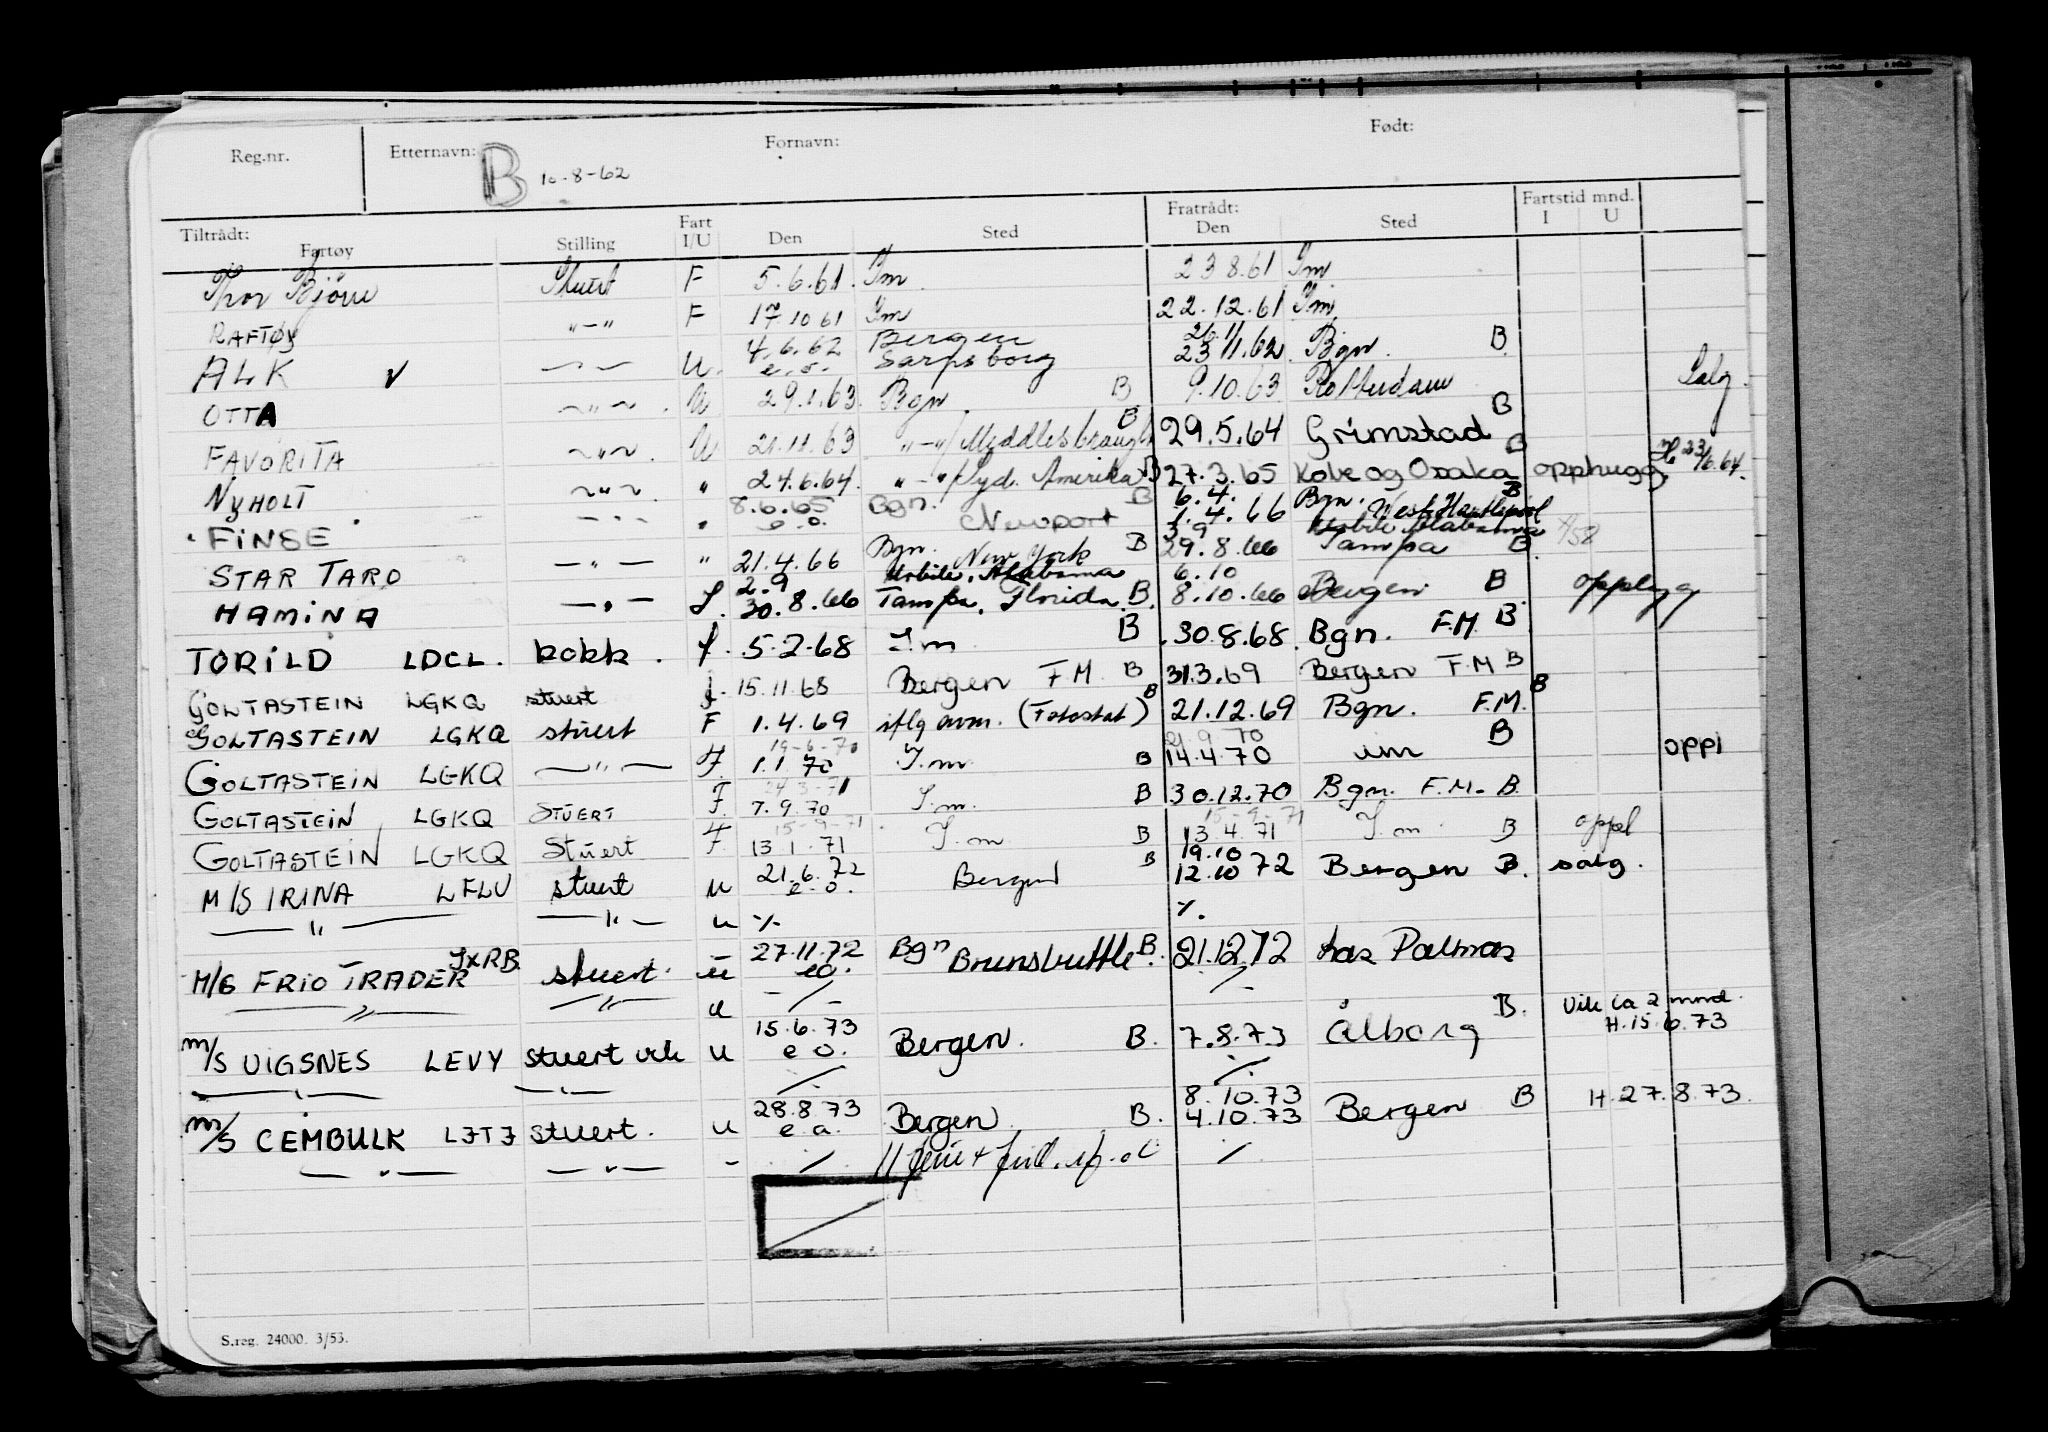 Reg.nr. Etternavn: Fornavn: Født:
B 10-8-62
Tiltrådt: Fratrådt: Fartstid mnd.
Fartøy Stilling Fart I/U Den Sted Den Sted I U
Thor Bjørn Stuert F 5.6.61 Im 23 8.61 Im
RAFTØY "-" F 17 10 61 Im 22.12.61 Im
4.6.62 Bergen 26.11
ALK V U. e.o. Sarpsborg 23 11.62 Bgn. B
OTTA ~"~ U 29.1.63 Bgn. B 9.10.63 Rotterdam Salg.
FAVORITA ~"~ U 21.11.63 "-" Middlesbraugh B 29.5.64 Grimstad B
NYHOLT ~"~ " 24.6.64. "-" Syd. Amerika B 27.3.65 Kobe og Osaka B opphugg. H 23/6.64.
8.6.65 Bgn. B 6.4. Bgn. B
FINSE -"- " e.o. Newport 1.4.66 West Hartlepool
Bgn. 3.9 Mobile Alabama 4/58
STAR TARO -"- " 21.4.66 New York B 29.8.66 Tampa B
2.9 Mobile, Alabama 6.10
HAMINA -"- 30.8.66 Tampa, Florida. B. 8.10.66 Bergen B opplegg
TORILD LDCL. kokk. f. 5.2.68 I.m B 30.8.68 Bgn. F.M. B
GOLTASTEIN LGKQ stuert f. 15.11.68 Bergen F M. B 31.3.69 Bergen F.M B
GOLTASTEIN LGKQ stuert F 1.4.69 iflg anm. (Fotostat) B 21.12.69 Bgn. F.M. B
19-6-70 21.9 70
GOLTASTEIN LGKQ ~"~ F. 1.1 70 I.m. B 14.4.70 im B oppl
24-3-71
GOLTASTEIN LGKQ STUERT F. 7.9.70 I.m. B 30.12.70 Bgn. F.M. B.
15-9-71 15-9-71
GOLTASTEIN LGKQ Stuert F. 13 1.71 I.m B 13 4.71 I.m B oppl
21.6.72 19.10
M/S IRINA LFLU stuert u e.o. Bergen B 12.10 72 Bergen B. salg.
-"- -"- u %. %.
27.11.72 Bgn
M/S FRIO TRADER JXRB stuert. u eo. Brunsbuttle B. 21.12.72 Las Palmas
-"- -"- u
15.6.73 Vik ca 2 mnd.
M/S VIGSNES LEVY stuert vik u e o. Bergen. B. 7.8.73 Ålborg B. H.15.6.73
-"- -"-
28.8.73 8.10.73
M/S CEMBULK LJTJ stuert. u e.o. Bergen B. 4.10.73 Bergen B H.27.8.73.
-"- -"- -
S.reg. 24000. 3/53.